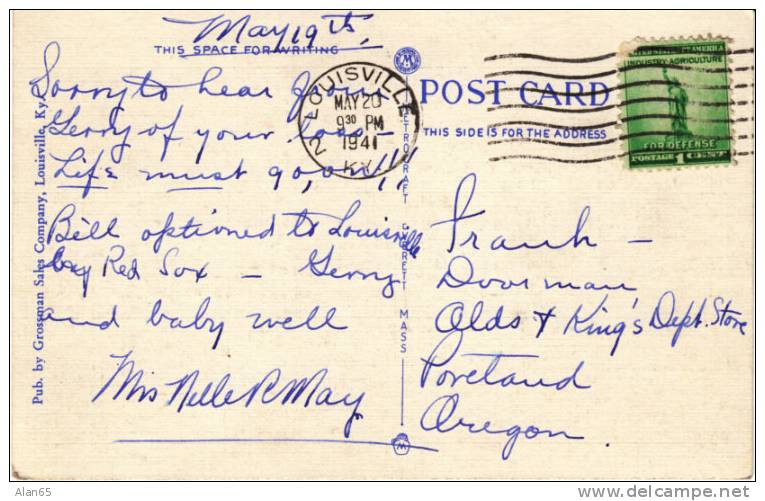 May 19th
THIS SPACE FOR WRITING
Sorry to hear from
Gerry of your loss —
Life must go, on!!!
Bill optioned to Louisville
by Red Sox — Gerry
and baby well
Mrs Nelle R May
Pub. by Grossman Sales Company, Louisville, Ky.
LOUISVILLE
MAY 20
9 30 PM
1941
KY.
2
METROCRAFT EVERETT MASS
POST CARD
THIS SIDE IS FOR THE ADDRESS
UNITED STATES OF AMERICA
INDUSTRY·AGRICULTURE
FOR DEFENSE
POSTAGE 1 CENT
Frank —
Doorman
Olds & King's Dept. Store
Portland
Oregon.
Alan65
www.delcampe.net